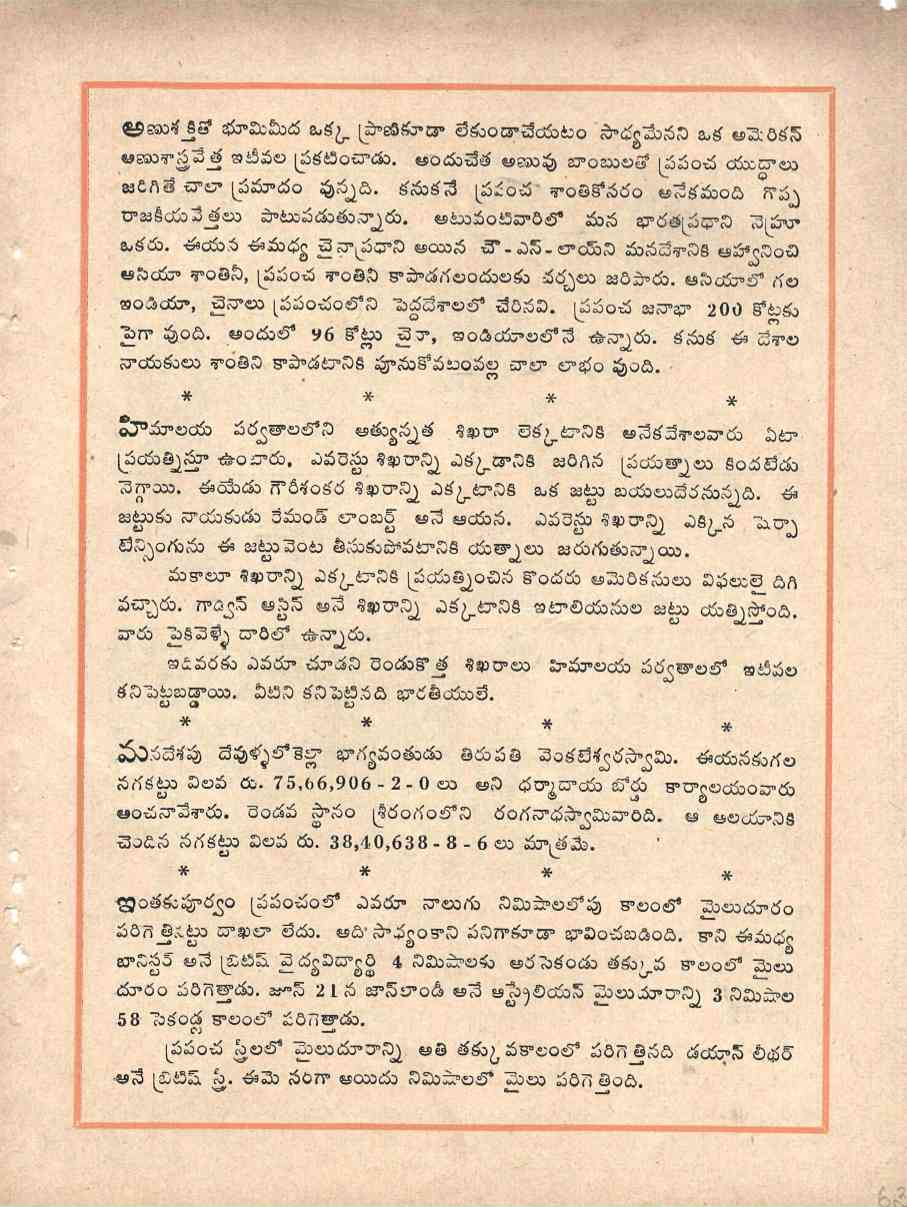 అణుశక్తితో భూమిమీద ఒక్క ప్రాణికూడా లేకుండాచేయటం సాధ్యమేనని ఒక అమెరికన్
అణుశాస్త్రవేత్త ఇటీవల ప్రకటించాడు. అందుచేత అణువు బాంబులతో ప్రపంచ యుద్ధాలు
జరిగితే చాలా ప్రమాదం వున్నది. కనుకనే ప్రపంచ శాంతికోసరం అనేకమంది గొప్ప
రాజకీయవేత్తలు పాటుపడుతున్నారు. అటువంటివారిలో మన భారతప్రధాని నెహ్రూ
ఒకరు. ఈయన ఈమధ్య చైనాప్రధాని అయిన చౌ-ఎన్-లాయ్‌ని మనదేశానికి ఆహ్వానించి
ఆసియా శాంతినీ, ప్రపంచ శాంతినీ కాపాడగలందులకు చర్చలు జరిపారు. ఆసియాలో గల
ఇండియా, చైనాలు ప్రపంచంలోని పెద్దదేశాలలో చేరినవి. ప్రపంచ జనాభా 200 కోట్లకు
పైగా వుంది. అందులో 96 కోట్లు చైనా, ఇండియాలలోనే ఉన్నారు. కనుక ఈ దేశాల
నాయకులు శాంతిని కాపాడటానికి పూనుకోవటంవల్ల చాలా లాభం వుంది.
* * * *
హిమాలయ పర్వతాలలోని అత్యున్నత శిఖరా లెక్కటానికి అనేకదేశాలవారు ఏటా
ప్రయత్నిస్తూ ఉంటారు. ఎవరెస్టు శిఖరాన్ని ఎక్కడానికి జరిగిన ప్రయత్నాలు కిందటేడు
నెగ్గాయి. ఈయేడు గౌరీశంకర శిఖరాన్ని ఎక్కటానికి ఒక జట్టు బయలుదేరనున్నది. ఈ
జట్టుకు నాయకుడు రేమండ్ లాంబర్ట్ అనే ఆయన. ఎవరెస్టు శిఖరాన్ని ఎక్కిన షెర్పా
టేన్సింగును ఈ జట్టువెంట తీసుకుపోవటానికి యత్నాలు జరుగుతున్నాయి.
మకాలూ శిఖరాన్ని ఎక్కటానికి ప్రయత్నించిన కొందరు అమెరికనులు విఫలులై దిగి
వచ్చారు. గాడ్విన్ ఆస్టిన్ అనే శిఖరాన్ని ఎక్కటానికి ఇటాలియనుల జట్టు యత్నిస్తోంది.
వారు పైకివెళ్ళే దారిలో ఉన్నారు.
ఇదివరకు ఎవరూ చూడని రెండుకొత్త శిఖరాలు హిమాలయ పర్వతాలలో ఇటీవల
కనిపెట్టబడ్డాయి. వీటిని కనిపెట్టినది భారతీయులే.
* * * *
మనదేశపు దేవుళ్ళలోకెల్లా భాగ్యవంతుడు తిరుపతి వెంకటేశ్వరస్వామి. ఈయనకుగల
నగకట్టు విలవ రు. 75,66,906-2-0 లు అని ధర్మాదాయ బోర్డు కార్యాలయంవారు
అంచనావేశారు. రెండవ స్థానం శ్రీరంగంలోని రంగనాధస్వామివారిది. ఆ ఆలయానికి
చెందిన నగకట్టు విలవ రు. 38,40,638-8-6 లు మాత్రమే.
* * * *
ఇంతకుపూర్వం ప్రపంచంలో ఎవరూ నాలుగు నిమిషాలలోపు కాలంలో మైలుదూరం
పరిగెత్తినట్టు దాఖలా లేదు. అది సాధ్యంకాని పనిగాకూడా భావించబడింది. కాని ఈమధ్య
బానిస్టర్ అనే బ్రిటిష్ వైద్యవిద్యార్థి 4 నిమిషాలకు అరసెకండు తక్కువ కాలంలో మైలు
దూరం పరిగెత్తాడు. జూన్ 21 న జాన్‌లాండీ అనే ఆస్ట్రేలియన్ మైలుదూరాన్ని 3 నిమిషాల
58 సెకండ్ల కాలంలో పరిగెత్తాడు.
ప్రపంచ స్త్రీలలో మైలుదూరాన్ని అతి తక్కువకాలంలో పరిగెత్తినది డయాన్ లీథర్
అనే బ్రిటిష్ స్త్రీ. ఈమె సరిగా అయిదు నిమిషాలలో మైలు పరిగెత్తింది.
63